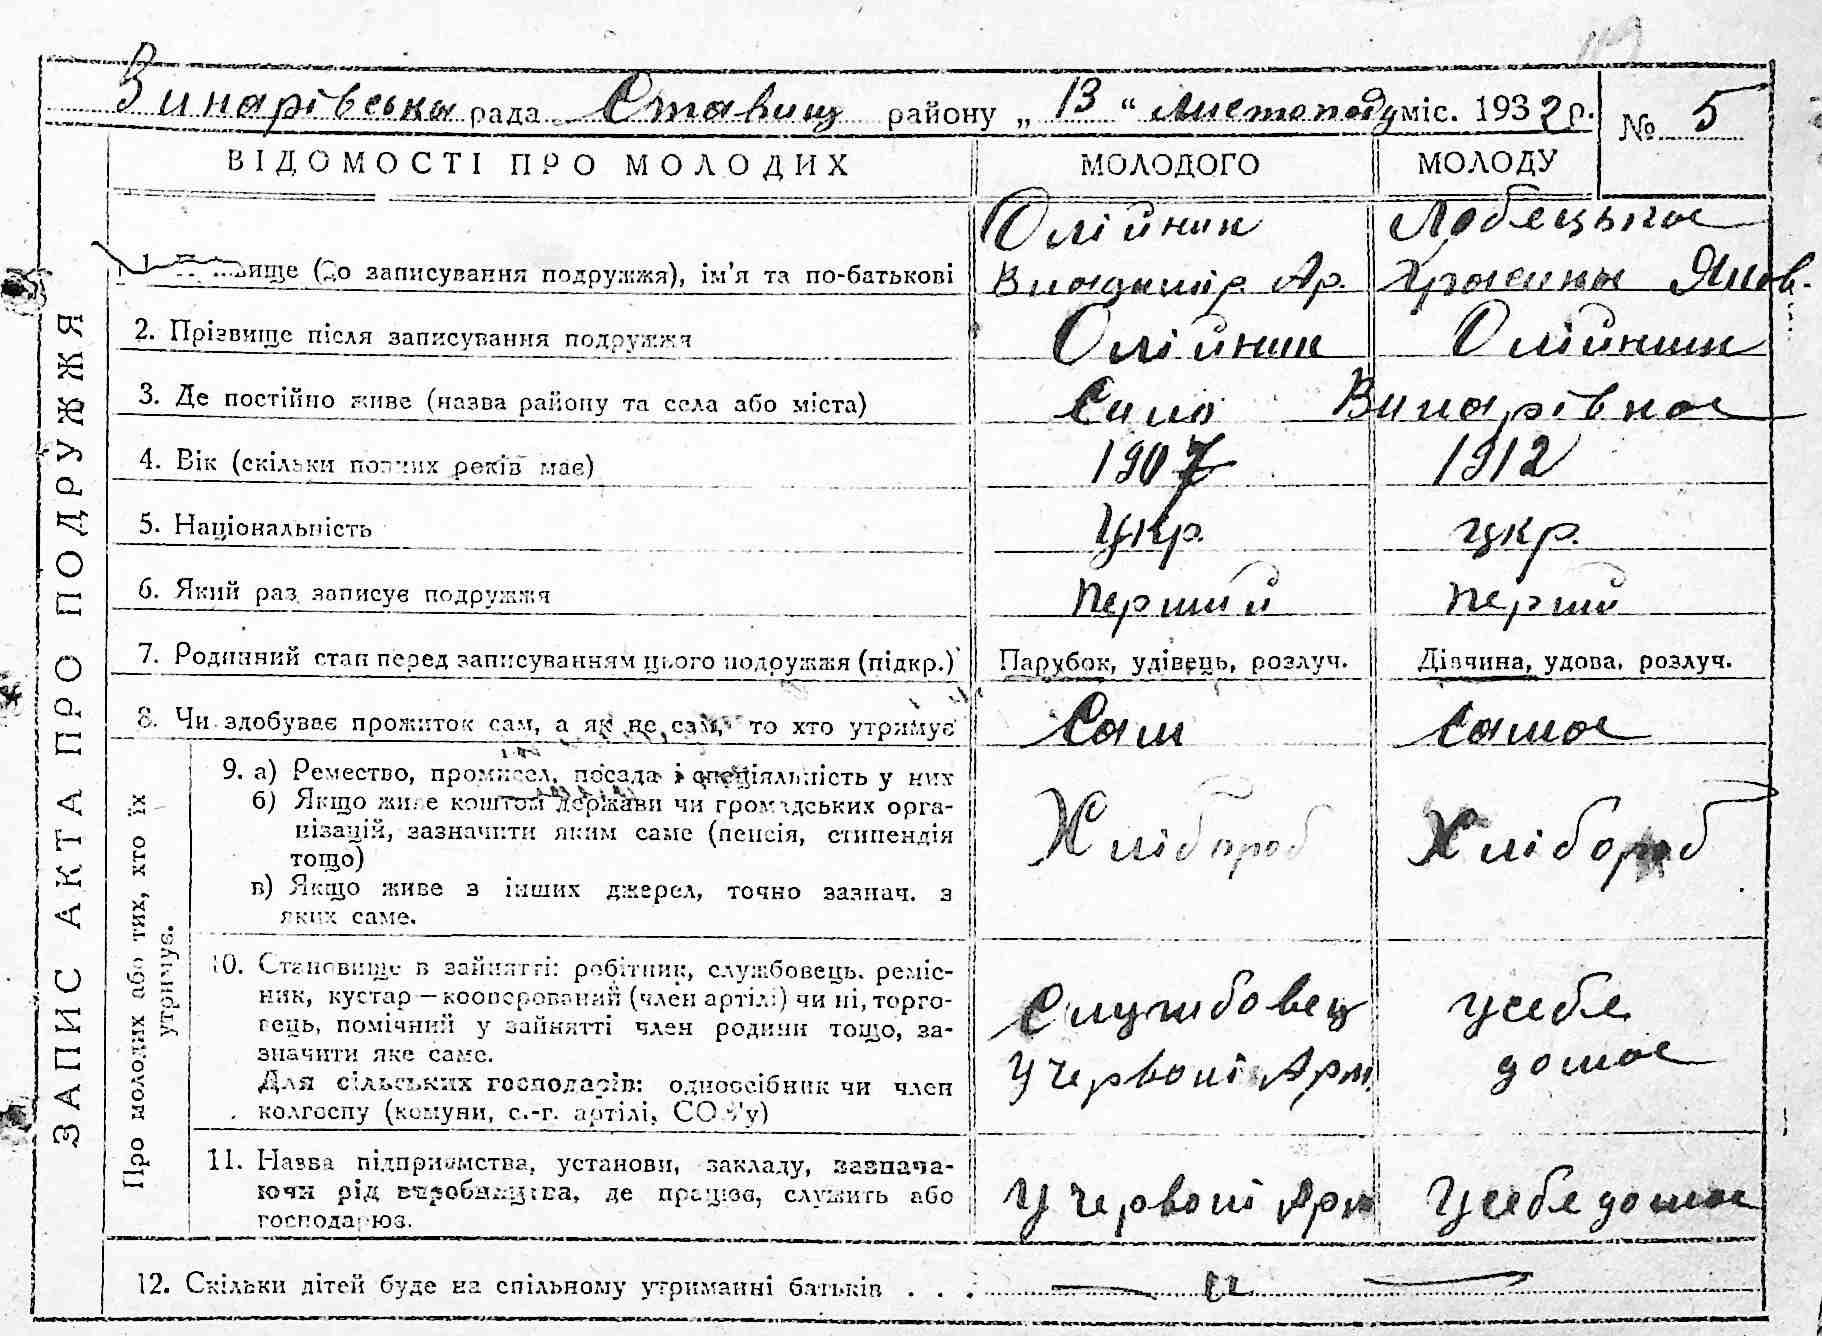 Винарівська рада Ставищ району „ 13 " листопаду міс. 1932 р. № 5
ВІДОМОСТІ ПРО МОЛОДИХ МОЛОДОГО МОЛОДУ
Олійник Лобецька
1. Прізвище (до записування подружжя), ім'я та по-батькові Владимір Ар. Яков.
2. Прізвище після записування подружжя Олійник Олійник
3. Де постійно живе (назва району та села або міста) Село Винарівка
4. Вік (скільки повних років має) 1907 1912
5. Національність Укр. укр.
6. Який раз записує подружжя перший перший
7. Родинний стан перед записуванням цього подружжя (підкр.) Парубок, удівець, розлуч. Дівчина, удова, розлуч.
8. Чи здобуває прожиток сам, а як не сам, то хто утримує Сам Сама
9. а) Ремество, промисел, посада і спеціяльність у них
б) Якщо живе коштом держави чи громадських орга-
нізацій, зазначити яким саме (пенсія, стипендія
тощо)
в) Якщо живе з інших джерел, точно зазнач. з
яких саме.
Хлібороб Хлібороб
10. Становище в зайнятті: робітник, службовець, реміс-
ник, кустар—кооперований (член артілі) чи ні, торго-
вець, помічний у зайнятті член родини тощо, за-
значити яке саме.
Для сільських господарів: одноосібник чи член
колгоспу (комуни, с.-г. артілі, СОЗ'у)
Службовец
У Червоні Арм.
усебе
дома
11. Назва підприємства, установи, закладу, зазнача-
ючи рід виробництва, де працює, служить або
господарює.
У Червоні Арм Усебе дома
12. Скільки дітей буде на спільному утриманні батьків . . .
ЗАПИС АКТА ПРО ПОДРУЖЖЯ
Про молодих або тих, хто їх
утримує.